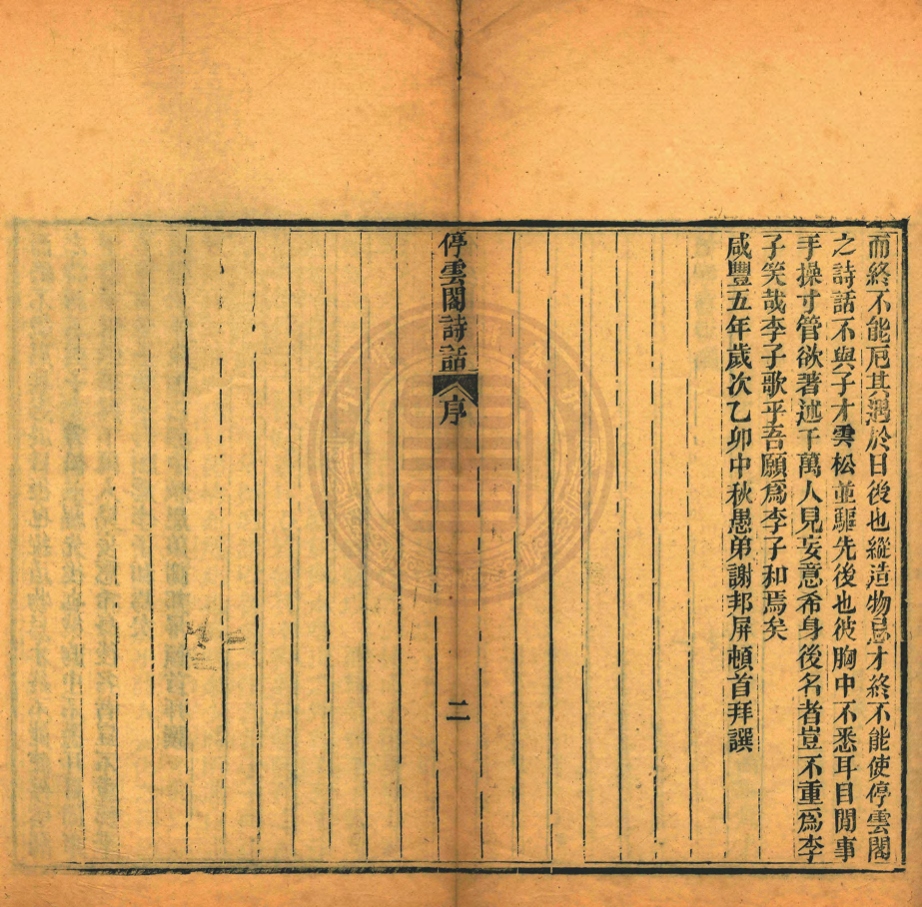 而終不能厄其遇於日後也縱造物忌才終不能使停雲閣
之詩話不與子才雲松並驅先後也彼胸中不悉耳目閒事
手操寸管欲著述千萬人見妄意希身後名者豈不重爲李
子笑哉李子歌乎吾願爲李子和焉矣
咸豐五年歲次乙卯中秋愚弟謝邦屏頓首拜譔
停雲閣詩話 序 二